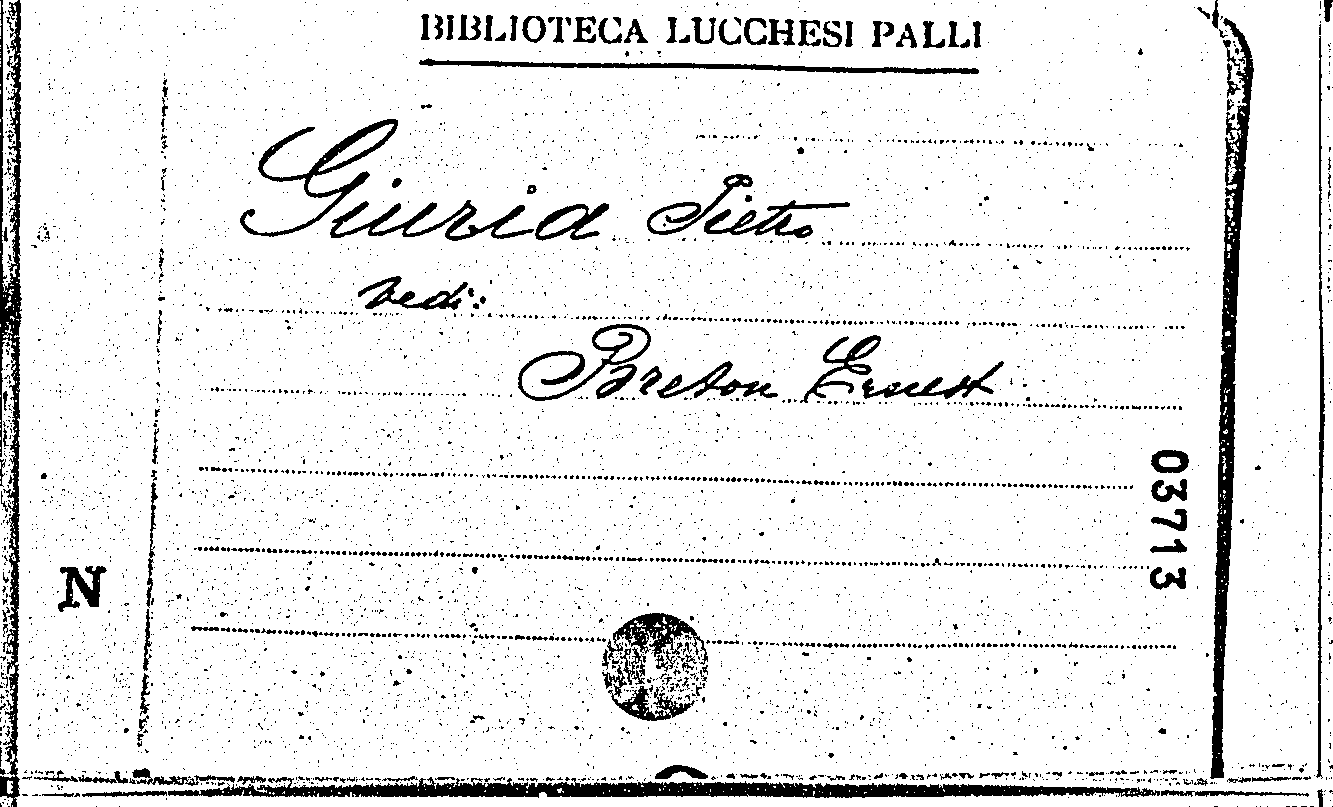 BIBLIOTECA LUCCHESI PALLI
Giuria Pietro
vedi:
Breton Ernest
03713
N